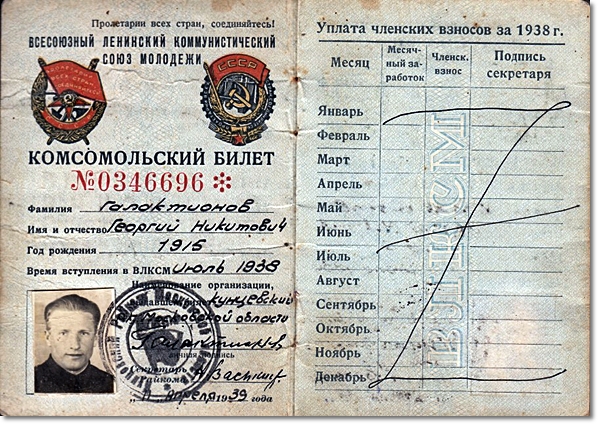 Пролетарии всех стран, соединяйтесь!
ВСЕСОЮЗНЫЙ ЛЕНИНСКИЙ КОММУНИСТИЧЕСКИЙ
СОЮЗ МОЛОДЕЖИ
СССР
КОМСОМОЛЬСКИЙ БИЛЕТ
№0346696
Фамилия Галактионов
Имя и отчество Георгий Никитович
Год рождения 1915
Время вступления в ВЛКСМ июль 1938
Наименование организации,
выдавшей билет Кунцевский
Московской области
личная подпись
Секретарь
Райкома
апреля 1939 года
Уплата членских взносов за 1938 г.
Месяц
Месяч-
ный за-
работок
Членск.
взнос
Подпись
секретаря
Январь
Февраль
Март
Апрель
Май
Июнь
Июль
Август
Сентябрь
Октябрь
Ноябрь
Декабрь
ВЛКСМ